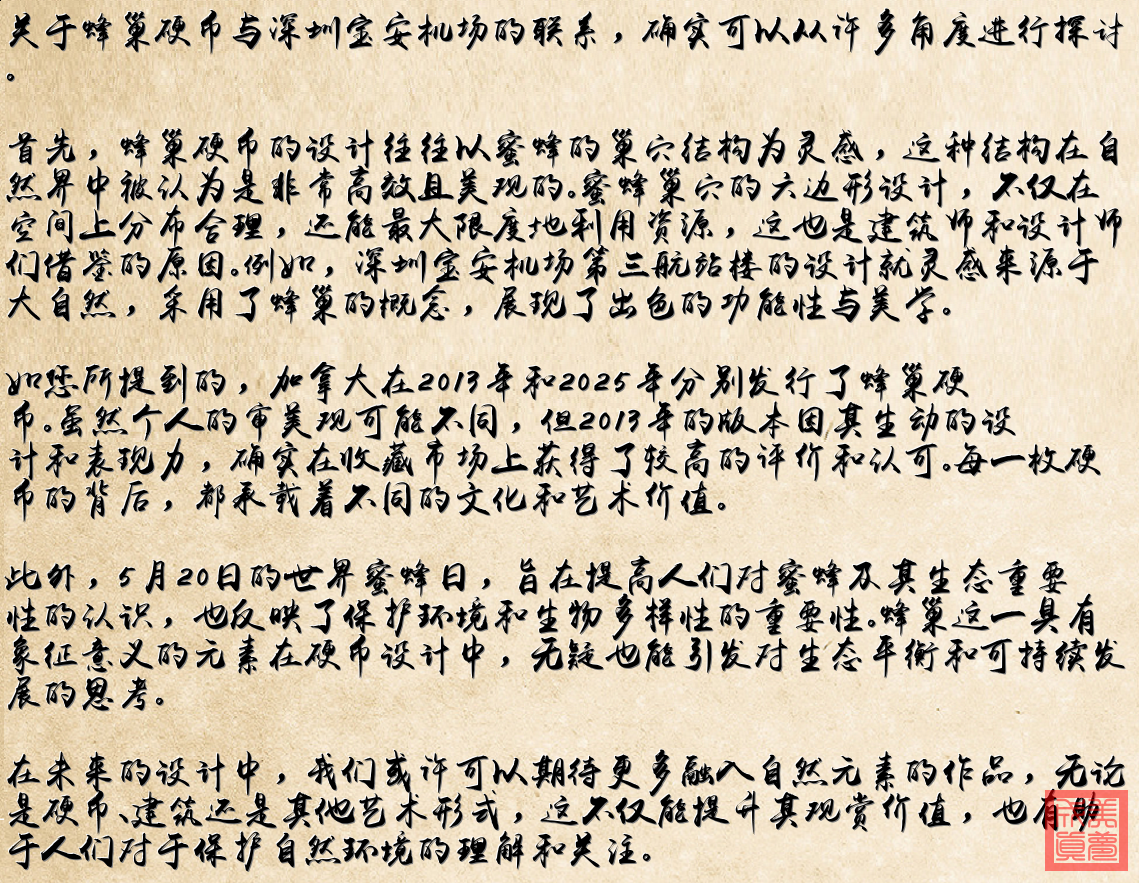 关于蜂巢硬币与深圳宝安机场的联系，确实可以从许多角度进行探讨
。
首先，蜂巢硬币的设计往往以蜜蜂的巢穴结构为灵感，这种结构在自
然界中被认为是非常高效且美观的。蜜蜂巢穴的六边形设计，不仅在
空间上分布合理，还能最大限度地利用资源，这也是建筑师和设计师
们借鉴的原因。例如，深圳宝安机场第三航站楼的设计就灵感来源于
大自然，采用了蜂巢的概念，展现了出色的功能性与美学。
如您所提到的，加拿大在2013年和2025年分别发行了蜂巢硬
币。虽然个人的审美观可能不同，但2013年的版本因其生动的设
计和表现力，确实在收藏市场上获得了较高的评价和认可。每一枚硬
币的背后，都承载着不同的文化和艺术价值。
此外，5月20日的世界蜜蜂日，旨在提高人们对蜜蜂及其生态重要
性的认识，也反映了保护环境和生物多样性的重要性。蜂巢这一具有
象征意义的元素在硬币设计中，无疑也能引发对生态平衡和可持续发
展的思考。
在未来的设计中，我们或许可以期待更多融入自然元素的作品，无论
是硬币、建筑还是其他艺术形式，这不仅能提升其观赏价值，也有助
于人们对于保护自然环境的理解和关注。